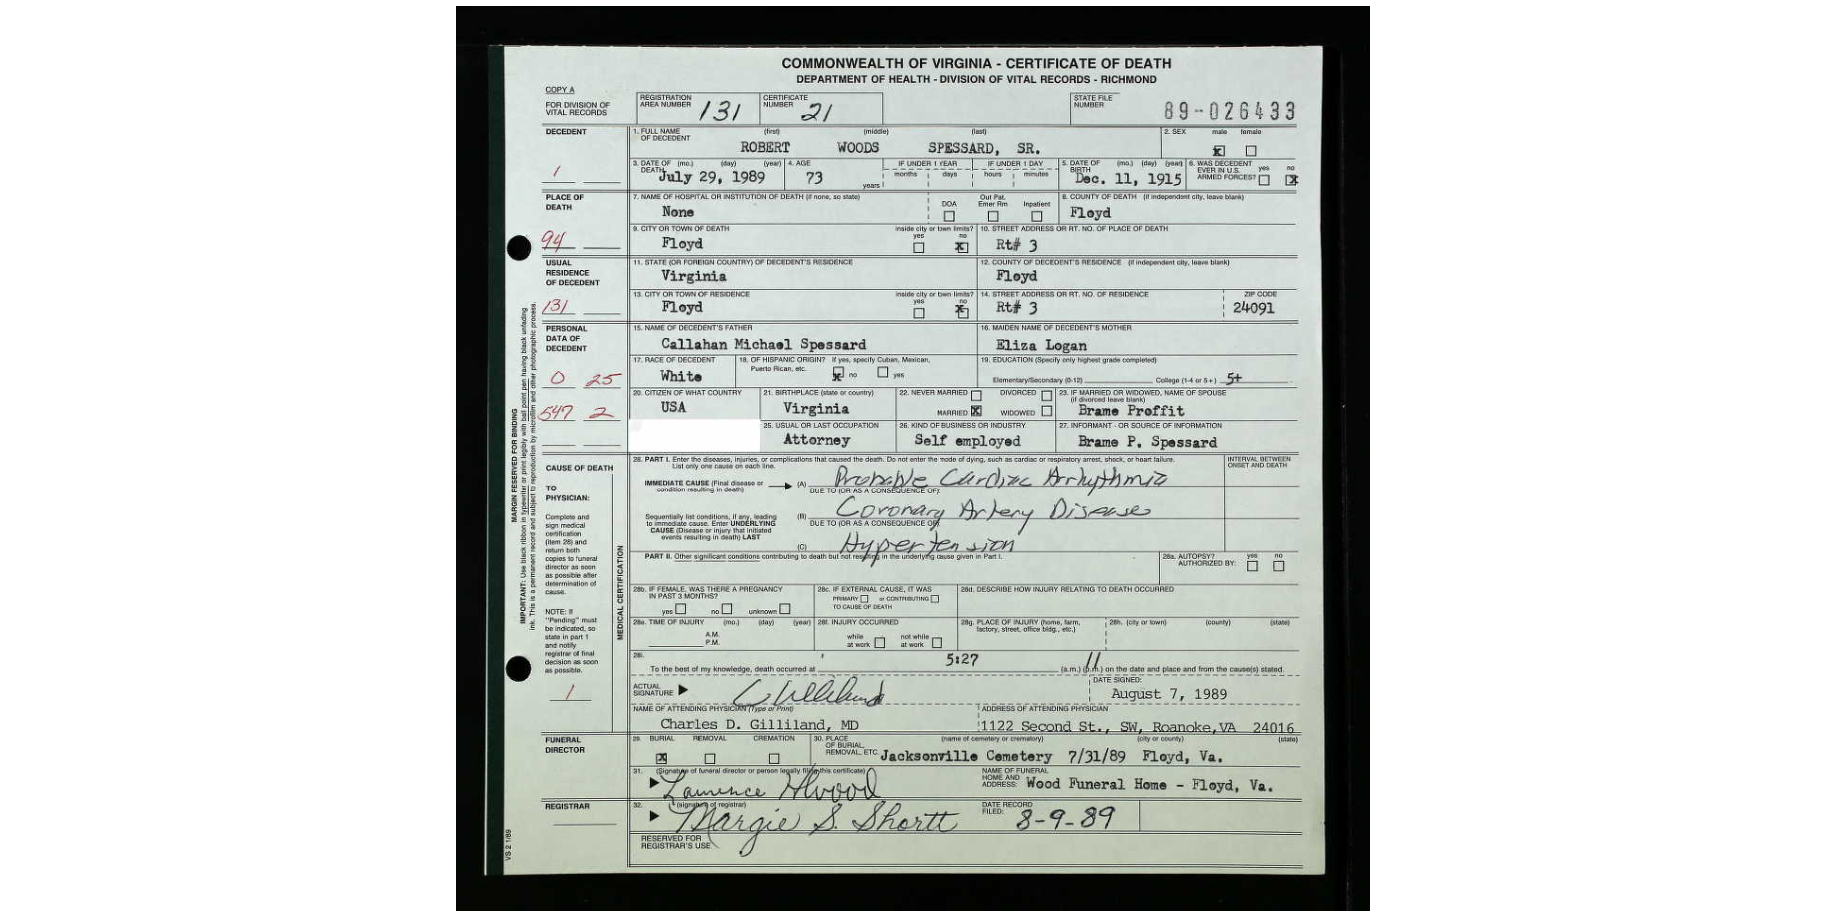 COMMONWEALTH OF VIRGINIA - CERTIFICATE OF DEATH
DEPARTMENT OF HEALTH - DIVISION OF VITAL RECORDS - RICHMOND
COPY A
FOR DIVISION OF VITAL RECORDS
REGISTRATION AREA NUMBER 131
CERTIFICATE NUMBER 21
STATE FILE NUMBER 89-026433
DECEDENT
1. FULL NAME OF DECEDENT (first) (middle) (last)
ROBERT WOODS SPESSARD, SR.
2. SEX male female
x
1
3. DATE OF DEATH (mo.) (day) (year)
July 29, 1989
4. AGE
73 years
IF UNDER 1 YEAR
months days
IF UNDER 1 DAY
hours minutes
5. DATE OF BIRTH (mo.) (day) (year)
Dec. 11, 1915
6. WAS DECEDENT EVER IN U.S. ARMED FORCES? yes no
x
PLACE OF DEATH
7. NAME OF HOSPITAL OR INSTITUTION OF DEATH (if none, so state)
None
DOA
Out Pat. Emer Rm
Inpatient
8. COUNTY OF DEATH (if independent city, leave blank)
Floyd
94
9. CITY OR TOWN OF DEATH
Floyd
inside city or town limits?
yes no
x
10. STREET ADDRESS OR RT. NO. OF PLACE OF DEATH
Rt# 3
USUAL RESIDENCE OF DECEDENT
11. STATE (OR FOREIGN COUNTRY) OF DECEDENT'S RESIDENCE
Virginia
12. COUNTY OF DECEDENT'S RESIDENCE (if independent city, leave blank)
Floyd
131
13. CITY OR TOWN OF RESIDENCE
Floyd
inside city or town limits?
yes no
x
14. STREET ADDRESS OR RT. NO. OF RESIDENCE
Rt# 3
ZIP CODE
24091
PERSONAL DATA OF DECEDENT
15. NAME OF DECEDENT'S FATHER
Callahan Michael Spessard
16. MAIDEN NAME OF DECEDENT'S MOTHER
Eliza Logan
0 25
17. RACE OF DECEDENT
White
18. OF HISPANIC ORIGIN? If yes, specify Cuban, Mexican, Puerto Rican, etc.
x no yes
19. EDUCATION (Specify only highest grade completed)
Elementary/Secondary (0-12) College (1-4 or 5+) 5+
547 2
20. CITIZEN OF WHAT COUNTRY
USA
21. BIRTHPLACE (state or country)
Virginia
22. NEVER MARRIED DIVORCED
MARRIED x WIDOWED
23. IF MARRIED OR WIDOWED, NAME OF SPOUSE (if divorced leave blank)
Brame Proffit
25. USUAL OR LAST OCCUPATION
Attorney
26. KIND OF BUSINESS OR INDUSTRY
Self employed
27. INFORMANT - OR SOURCE OF INFORMATION
Brame P. Spessard
CAUSE OF DEATH
TO PHYSICIAN:
Complete and
sign medical
certification
(item 28) and
return both
copies to funeral
director as soon
as possible after
determination of
cause.
NOTE: If
"Pending" must
be indicated, so
state in part 1
and notify
registrar of final
decision as soon
as possible.
1
MEDICAL CERTIFICATION
28. PART I. Enter the diseases, injuries, or complications that caused the death. Do not enter the mode of dying, such as cardiac or respiratory arrest, shock, or heart failure.
List only one cause on each line.
INTERVAL BETWEEN ONSET AND DEATH
IMMEDIATE CAUSE (Final disease or condition resulting in death)
(A) Probable Cardiac Arrhythmia
DUE TO (OR AS A CONSEQUENCE OF):
Sequentially list conditions, if any, leading to immediate cause. Enter UNDERLYING CAUSE (Disease or injury that initiated events resulting in death) LAST
(B) Coronary Artery Disease
DUE TO (OR AS A CONSEQUENCE OF):
(C) Hypertension
PART II. Other significant conditions contributing to death but not resulting in the underlying cause given in Part I.
28a. AUTOPSY? yes no
AUTHORIZED BY:
28b. IF FEMALE, WAS THERE A PREGNANCY IN PAST 3 MONTHS?
yes no unknown
28c. IF EXTERNAL CAUSE, IT WAS
PRIMARY or CONTRIBUTING
TO CAUSE OF DEATH
28d. DESCRIBE HOW INJURY RELATING TO DEATH OCCURRED
28e. TIME OF INJURY (mo.) (day) (year)
A.M.
P.M.
28f. INJURY OCCURRED
while at work not while at work
28g. PLACE OF INJURY (home, farm, factory, street, office bldg., etc.)
28h. (city or town) (county) (state)
28i.
To the best of my knowledge, death occurred at 5:27 (a.m.) (p.m.) on the date and place and from the cause(s) stated.
ACTUAL SIGNATURE
DATE SIGNED:
August 7, 1989
NAME OF ATTENDING PHYSICIAN (Type or Print)
Charles D. Gilliland, MD
ADDRESS OF ATTENDING PHYSICIAN
1122 Second St., SW, Roanoke, VA 24016
FUNERAL DIRECTOR
29. BURIAL REMOVAL CREMATION
x
30. PLACE OF BURIAL, REMOVAL, ETC. (name of cemetery or crematory) (city or county) (state)
Jacksonville Cemetery 7/31/89 Floyd, Va.
31. (Signature of funeral director or person legally filing this certificate)
NAME OF FUNERAL HOME AND ADDRESS: Wood Funeral Home - Floyd, Va.
REGISTRAR
32. (signature of registrar)
Margie S. Shortt
DATE RECORD FILED: 8-9-89
RESERVED FOR REGISTRAR'S USE
VS 2 1/89
MARGIN RESERVED FOR BINDING
IMPORTANT: Use black ribbon in typewriter or print legibly with ball point pen having black unfading
ink. This is a permanent record and subject to reproduction by microfilm and other photographic process.